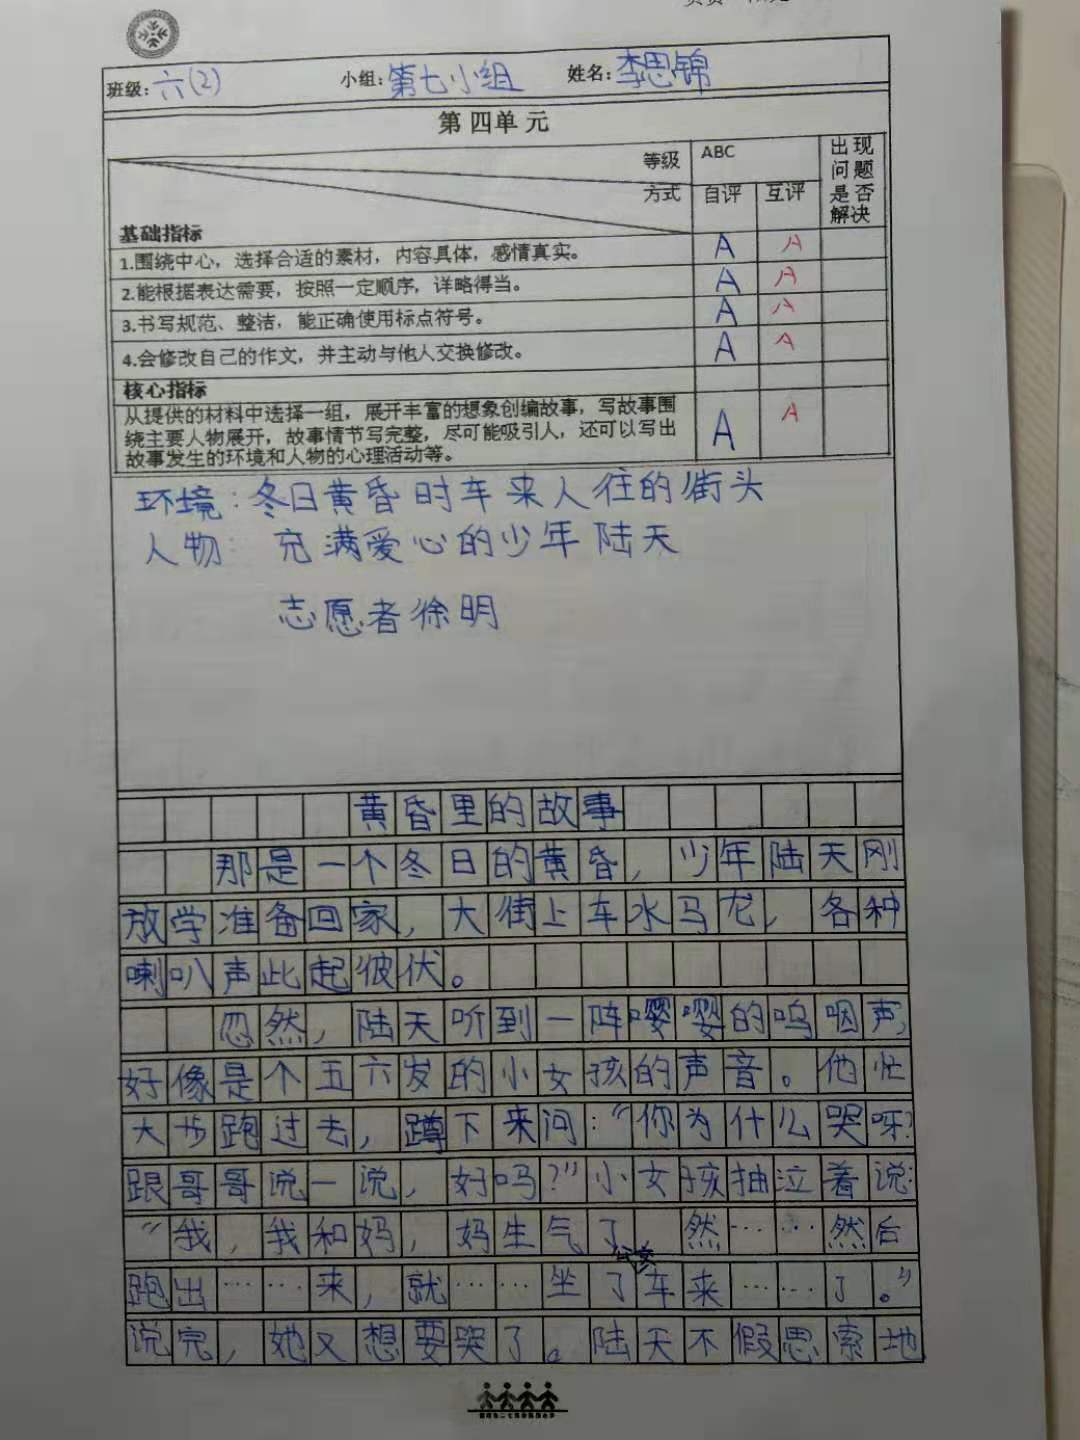 班级：六(2) 小组：第七小组 姓名：李思锦
第四单元
等级 ABC 出现问题是否解决
方式 自评 互评
基础指标
1.围绕中心，选择合适的素材，内容具体，感情真实。 A A
2.能根据表达需要，按照一定顺序，详略得当。 A A
3.书写规范、整洁，能正确使用标点符号。 A A
4.会修改自己的作文，并主动与他人交换修改。 A A
核心指标
从提供的材料中选择一组，展开丰富的想象创编故事，写故事围
绕主要人物展开，故事情节写完整，尽可能吸引人，还可以写出 A A
故事发生的环境和人物的心理活动等。
环境：冬日黄昏时车来人往的街头
人物：充满爱心的少年陆天
志愿者徐明
黄昏里的故事
那是一个冬日的黄昏，少年陆天刚
放学准备回家，大街上车水马龙，各种
喇叭声此起彼伏。
忽然，陆天听到一阵嘤嘤的呜咽声，
好像是个五六岁的小女孩的声音。他忙
大步跑过去，蹲下来问：“你为什么哭呀？
跟哥哥说一说，好吗？”小女孩抽泣着说：
“我，我和妈，妈生气了 然……然后
跑出……来，就……坐了公交车来……了。”
说完，她又想要哭了。陆天不假思索地